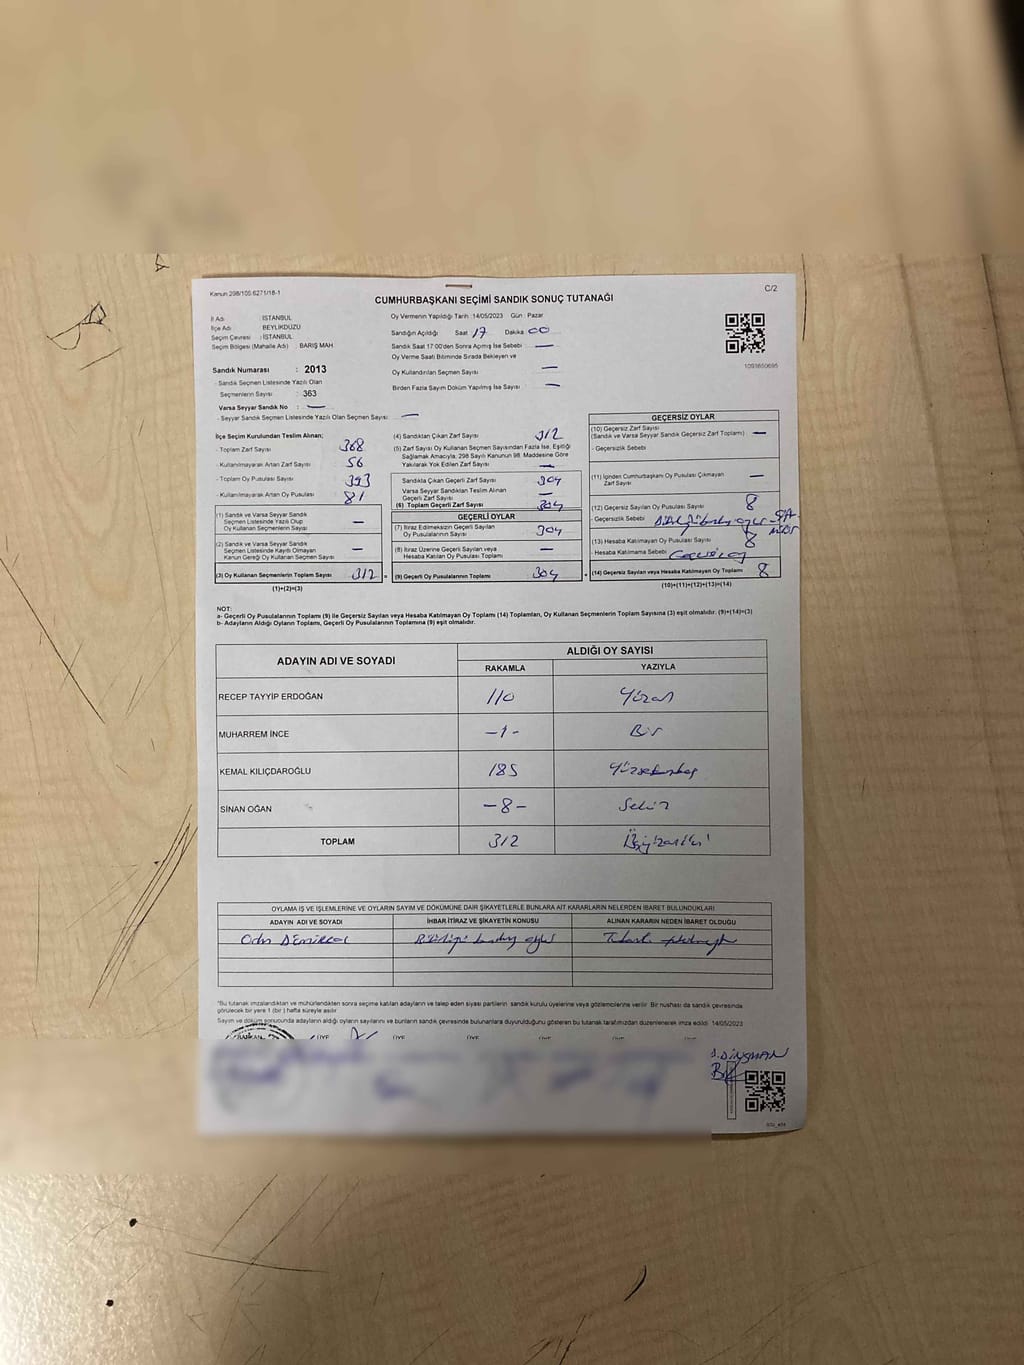 Kanun 298/105.6271/18-1
C/2
CUMHURBAŞKANI SEÇİMİ SANDIK SONUÇ TUTANAĞI
İl Adı : İSTANBUL
İlçe Adı : BEYLİKDÜZÜ
Seçim Çevresi : İSTANBUL
Seçim Bölgesi (Mahalle Adı) : BARIŞ MAH
Oy Vermenin Yapıldığı Tarih :14/05/2023 Gün : Pazar
Sandığın Açıldığı Saat 17 Dakika 00
Sandık Saat 17:00'den Sonra Açımış İse Sebebi —
Oy Verme Saati Bitiminde Sırada Bekleyen ve
Oy Kullandırılan Seçmen Sayısı —
Birden Fazla Sayım Döküm Yapılmış İse Sayısı —
1093850695
Sandık Numarası : 2013
- Sandık Seçmen Listesinde Yazılı Olan
Seçmenlerin Sayısı : 363
Varsa Seyyar Sandık No : —
- Seyyar Sandık Seçmen Listesinde Yazılı Olan Seçmen Sayısı —
İlçe Seçim Kurulundan Teslim Alınan;
- Toplam Zarf Sayısı 368
- Kullanılmayarak Artan Zarf Sayısı 56
- Toplam Oy Pusulası Sayısı 393
- Kullanılmayarak Artan Oy Pusulası 81
(1) Sandık ve Varsa Seyyar Sandık
Seçmen Listesinde Yazılı Olup
Oy Kullanan Seçmenlerin Sayısı —
(2) Sandık ve Varsa Seyyar Sandık
Seçmen Listesinde Kayıtlı Olmayan
Kanun Gereği Oy Kullanan Seçmen Sayısı —
(3) Oy Kullanan Seçmenlerin Toplam Sayısı 312
(1)+(2)=(3)
(4) Sandıktan Çıkan Zarf Sayısı 312
(5) Zarf Sayısı Oy Kullanan Seçmen Sayısından Fazla İse, Eşitliği
Sağlamak Amacıyla; 298 Sayılı Kanunun 98. Maddesine Göre
Yakılarak Yok Edilen Zarf Sayısı —
Sandıkta Çıkan Geçerli Zarf Sayısı 304
Varsa Seyyar Sandıktan Teslim Alınan
Geçerli Zarf Sayısı —
(6) Toplam Geçerli Zarf Sayısı 304
GEÇERLİ OYLAR
(7) İtiraz Edilmeksizin Geçerli Sayılan
Oy Pusulalarının Sayısı 304
(8) İtiraz Üzerine Geçerli Sayılan veya
Hesaba Katılan Oy Pusulası Toplamı —
= (9) Geçerli Oy Pusulalarının Toplamı 304
GEÇERSİZ OYLAR
(10) Geçersiz Zarf Sayısı
(Sandık ve Varsa Seyyar Sandık Geçersiz Zarf Toplamı) —
- Geçersizlik Sebebi
(11) İçinden Cumhurbaşkanı Oy Pusulası Çıkmayan
Zarf Sayısı —
(12) Geçersiz Sayılan Oy Pusulası Sayısı 8
- Geçersizlik Sebebi
(13) Hesaba Katılmayan Oy Pusulası Sayısı 8
- Hesaba Katılmama Sebebi Geçersiz oy
+ (14) Geçersiz Sayılan veya Hesaba Katılmayan Oy Toplamı 8
(10)+(11)+(12)+(13)=(14)
NOT:
a- Geçerli Oy Pusulalarının Toplamı (9) ile Geçersiz Sayılan veya Hesaba Katılmayan Oy Toplamı (14) Toplamları, Oy Kullanan Seçmenlerin Toplam Sayısına (3) eşit olmalıdır. (9)+(14)=(3)
b- Adayların Aldığı Oyların Toplamı, Geçerli Oy Pusulalarının Toplamına (9) eşit olmalıdır.
ADAYIN ADI VE SOYADI
ALDIĞI OY SAYISI
RAKAMLA YAZIYLA
RECEP TAYYİP ERDOĞAN 110 Yüzon
MUHARREM İNCE -1- Bir
KEMAL KILIÇDAROĞLU 185 Yüzseksenbeş
SİNAN OĞAN -8- Sekiz
TOPLAM 312 Üçyüzoniki
OYLAMA İŞ VE İŞLEMLERİNE VE OYLARIN SAYIM VE DÖKÜMÜNE DAİR ŞİKAYETLERLE BUNLARA AİT KARARLARIN NELERDEN İBARET BULUNDUKLARI
ADAYIN ADI VE SOYADI İHBAR İTİRAZ VE ŞİKAYETİN KONUSU ALINAN KARARIN NEDEN İBARET OLDUĞU
*Bu tutanak imzalandıktan ve mühürlendikten sonra seçime katılan adayların ve talep eden siyasi partilerin sandık kurulu üyelerine veya gözlemcilerine verilir. Bir nushası da sandık çevresinde
görülecek bir yere 1 (bir ) hafta süreyle asılır.
Sayım ve döküm sonucunda adayların aldığı oyların sayılarını ve bunların sandık çevresinde bulunanlara duyurulduğunu gösteren bu tutanak tarafımızdan düzenlenerek imza edildi. 14/05/2023
BAŞKAN ÜYE ÜYE ÜYE ÜYE ÜYE